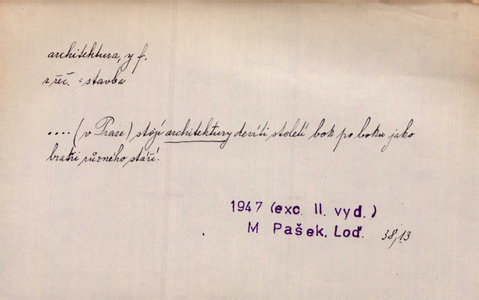 architektura, y f.
z řeč. = stavba
.... (v Praze) stojí architektury devíti století bok po boku jako
bratři různého stáří.
1947 (exc. II. vyd.)
M Pašek, Loď. 38,13